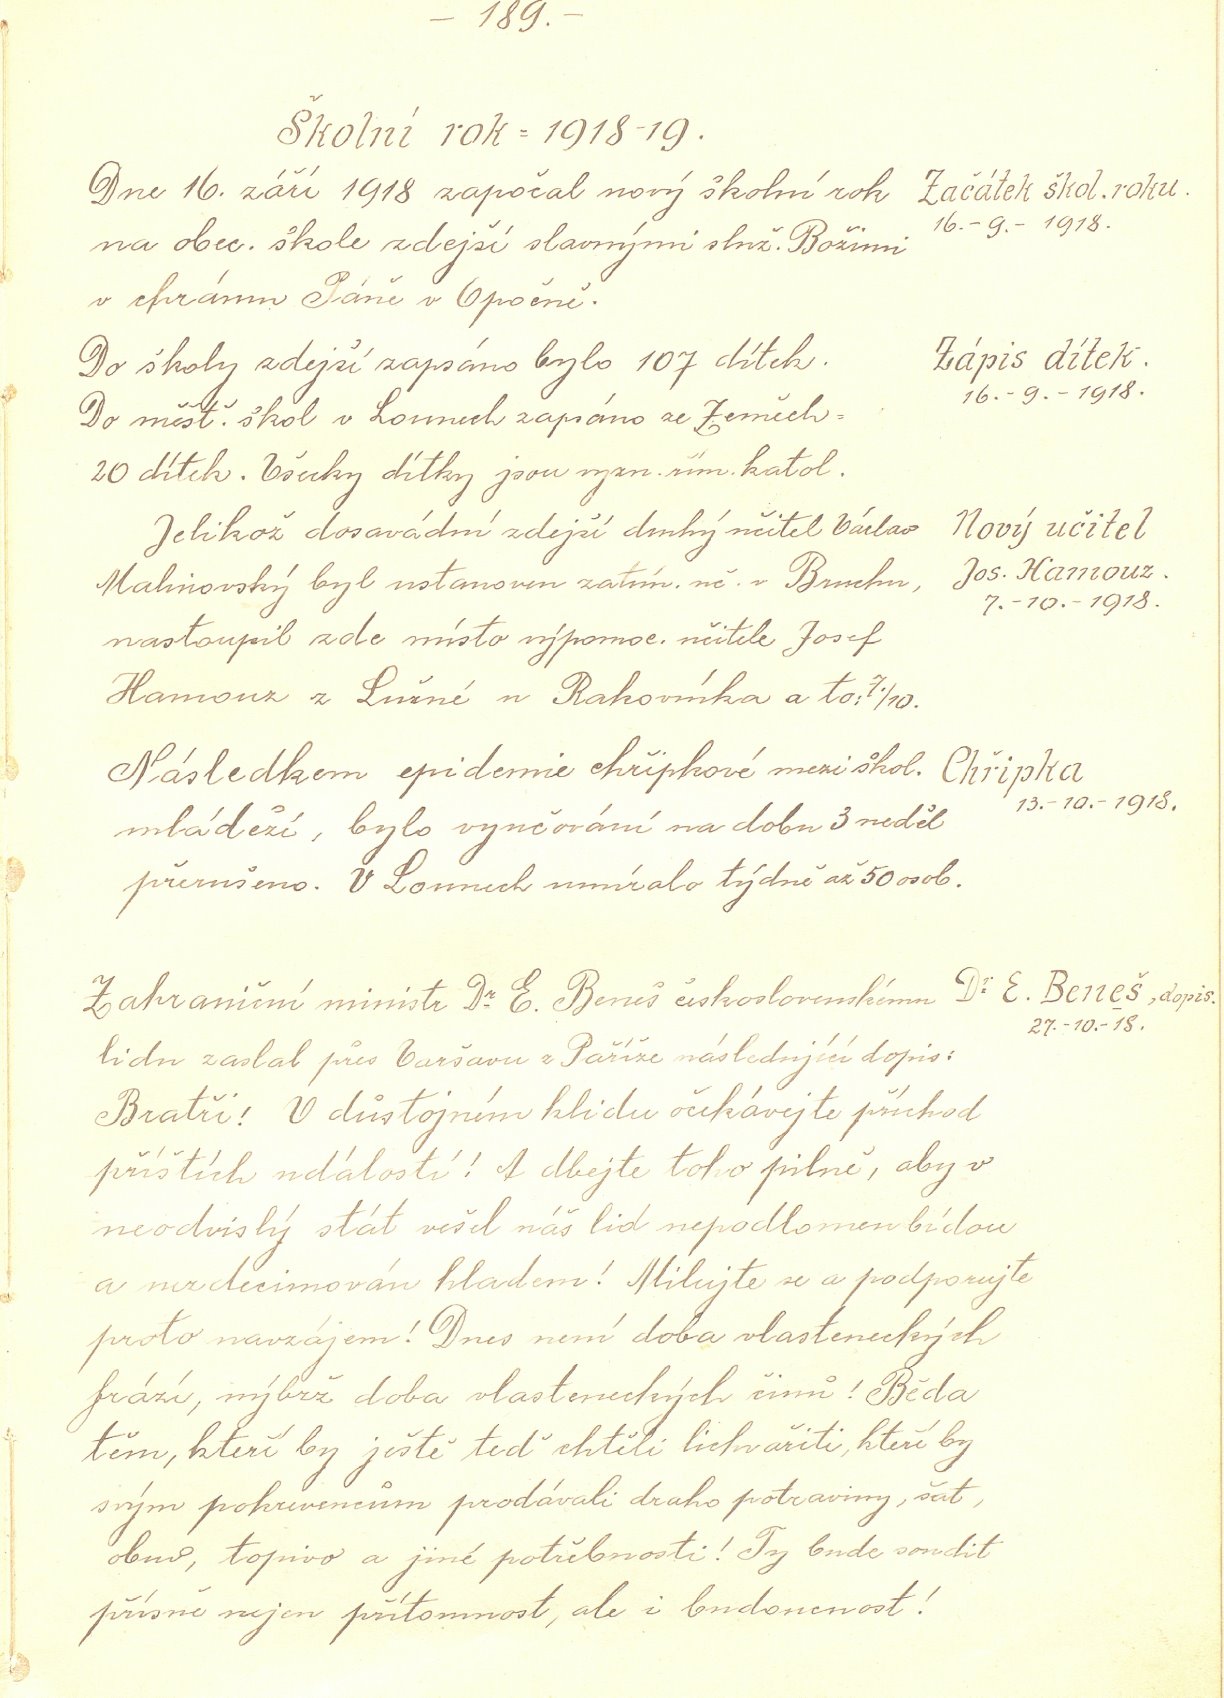 – 189. –
Školní rok = 1918-19.
Dne 16. září 1918 započal nový školní rok
Začátek škol. roku.
16.-9.- 1918.
na obec. škole zdejší slavnými služ. Božími
v chrámu Páně v Opočně.
Do školy zdejší zapsáno bylo 107 dítek.
Zápis dítek.
16.-9.-1918.
Do měšť. škol v Lounech zapsáno ze Zeměch =
20 dítek. Všecky dítky jsou vyzn. řím. katol.
Jelikož dosavádní zdejší druhý učitel Václav
Nový učitel
Malinovský byl ustanoven zatím. uč. v Bruchu,
Jos. Hamouz.
7.-10.-1918.
nastoupil zde místo výpomoc. učitele Josef
Hamouz z Lužné u Rakovníka a to: 7./10.
Následkem epidemie chřipkové mezi škol.
Chřipka
13.-10.-1918.
mládeží, bylo vyučování na dobu 3 neděl
přerušeno. V Lounech umíralo týdně až 50 osob.
Zahraniční ministr Dr E. Beneš československému
Dr E. Beneš, dopis.
27.-10.-18.
lidu zaslal přes Varšavu z Paříže následující dopis:
Bratři! V důstojném klidu očekávejte příchod
příštích událostí! A dbejte toho pilně, aby v
neodvislý stát vešel náš lid nepodlomen bídou
a nezdecimován hladem! Milujte se a podporujte
proto navzájem! Dnes není doba vlasteneckých
frází, nýbrž doba vlasteneckých činů! Běda
těm, kteří by ještě teď chtěli lichvařiti, kteří by
svým pokrevencům prodávali draho potraviny, šat,
obuv, topivo a jiné potřebnosti! Ty bude soudit
přísně nejen přítomnost, ale i budoucnost!